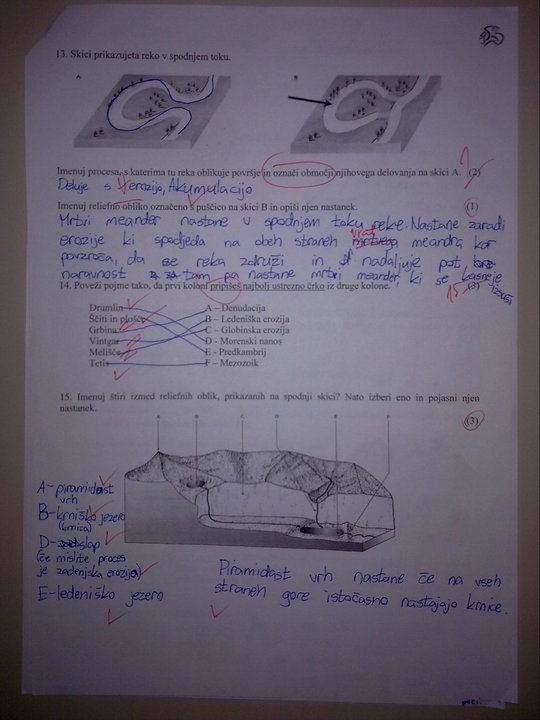 13. Skici prikazujeta reko v spodnjem toku.
A
B
Imenuj procesa, s katerima tu reka oblikuje površje in označi območji njihovega delovanja na skici A. (2)
Deluje s erozijo, Akumulacijo
Imenuj reliefno obliko označeno s puščico na skici B in opiši njen nastanek. (1)
Mrtvi meander nastane v spodnjem toku reke. Nastane zaradi
erozije ki spodjeda na obeh straneh vrat meandra, kar
povzroča, da se reka združi in nadaljuje pot,
naravnost tam pa nastane mrtvi meander, ki se kasneje
14. Poveži pojme tako, da prvi koloni pripišeš najbolj ustrezno črko iz druge kolone. (3)
Drumlin A – Denudacija
Ščiti in plošče B – Ledeniška erozija
Grbina C – Globinska erozija
Vintgar D - Morenski nanos
Melišče E - Predkambrij
Tetis F – Mezozoik
15. Imenuj štiri izmed reliefnih oblik, prikazanih na spodnji skici? Nato izberi eno in pojasni njen
nastanek. (3)
A B C D E F
A- piramidast
vrh
B- krniško jezero
(krnica)
D- slap
(če mislite proces
je zadenjska erozija)
E-ledeniško jezero
Piramidast vrh nastane če na vseh
straneh gore istočasno nastajajo krnice.